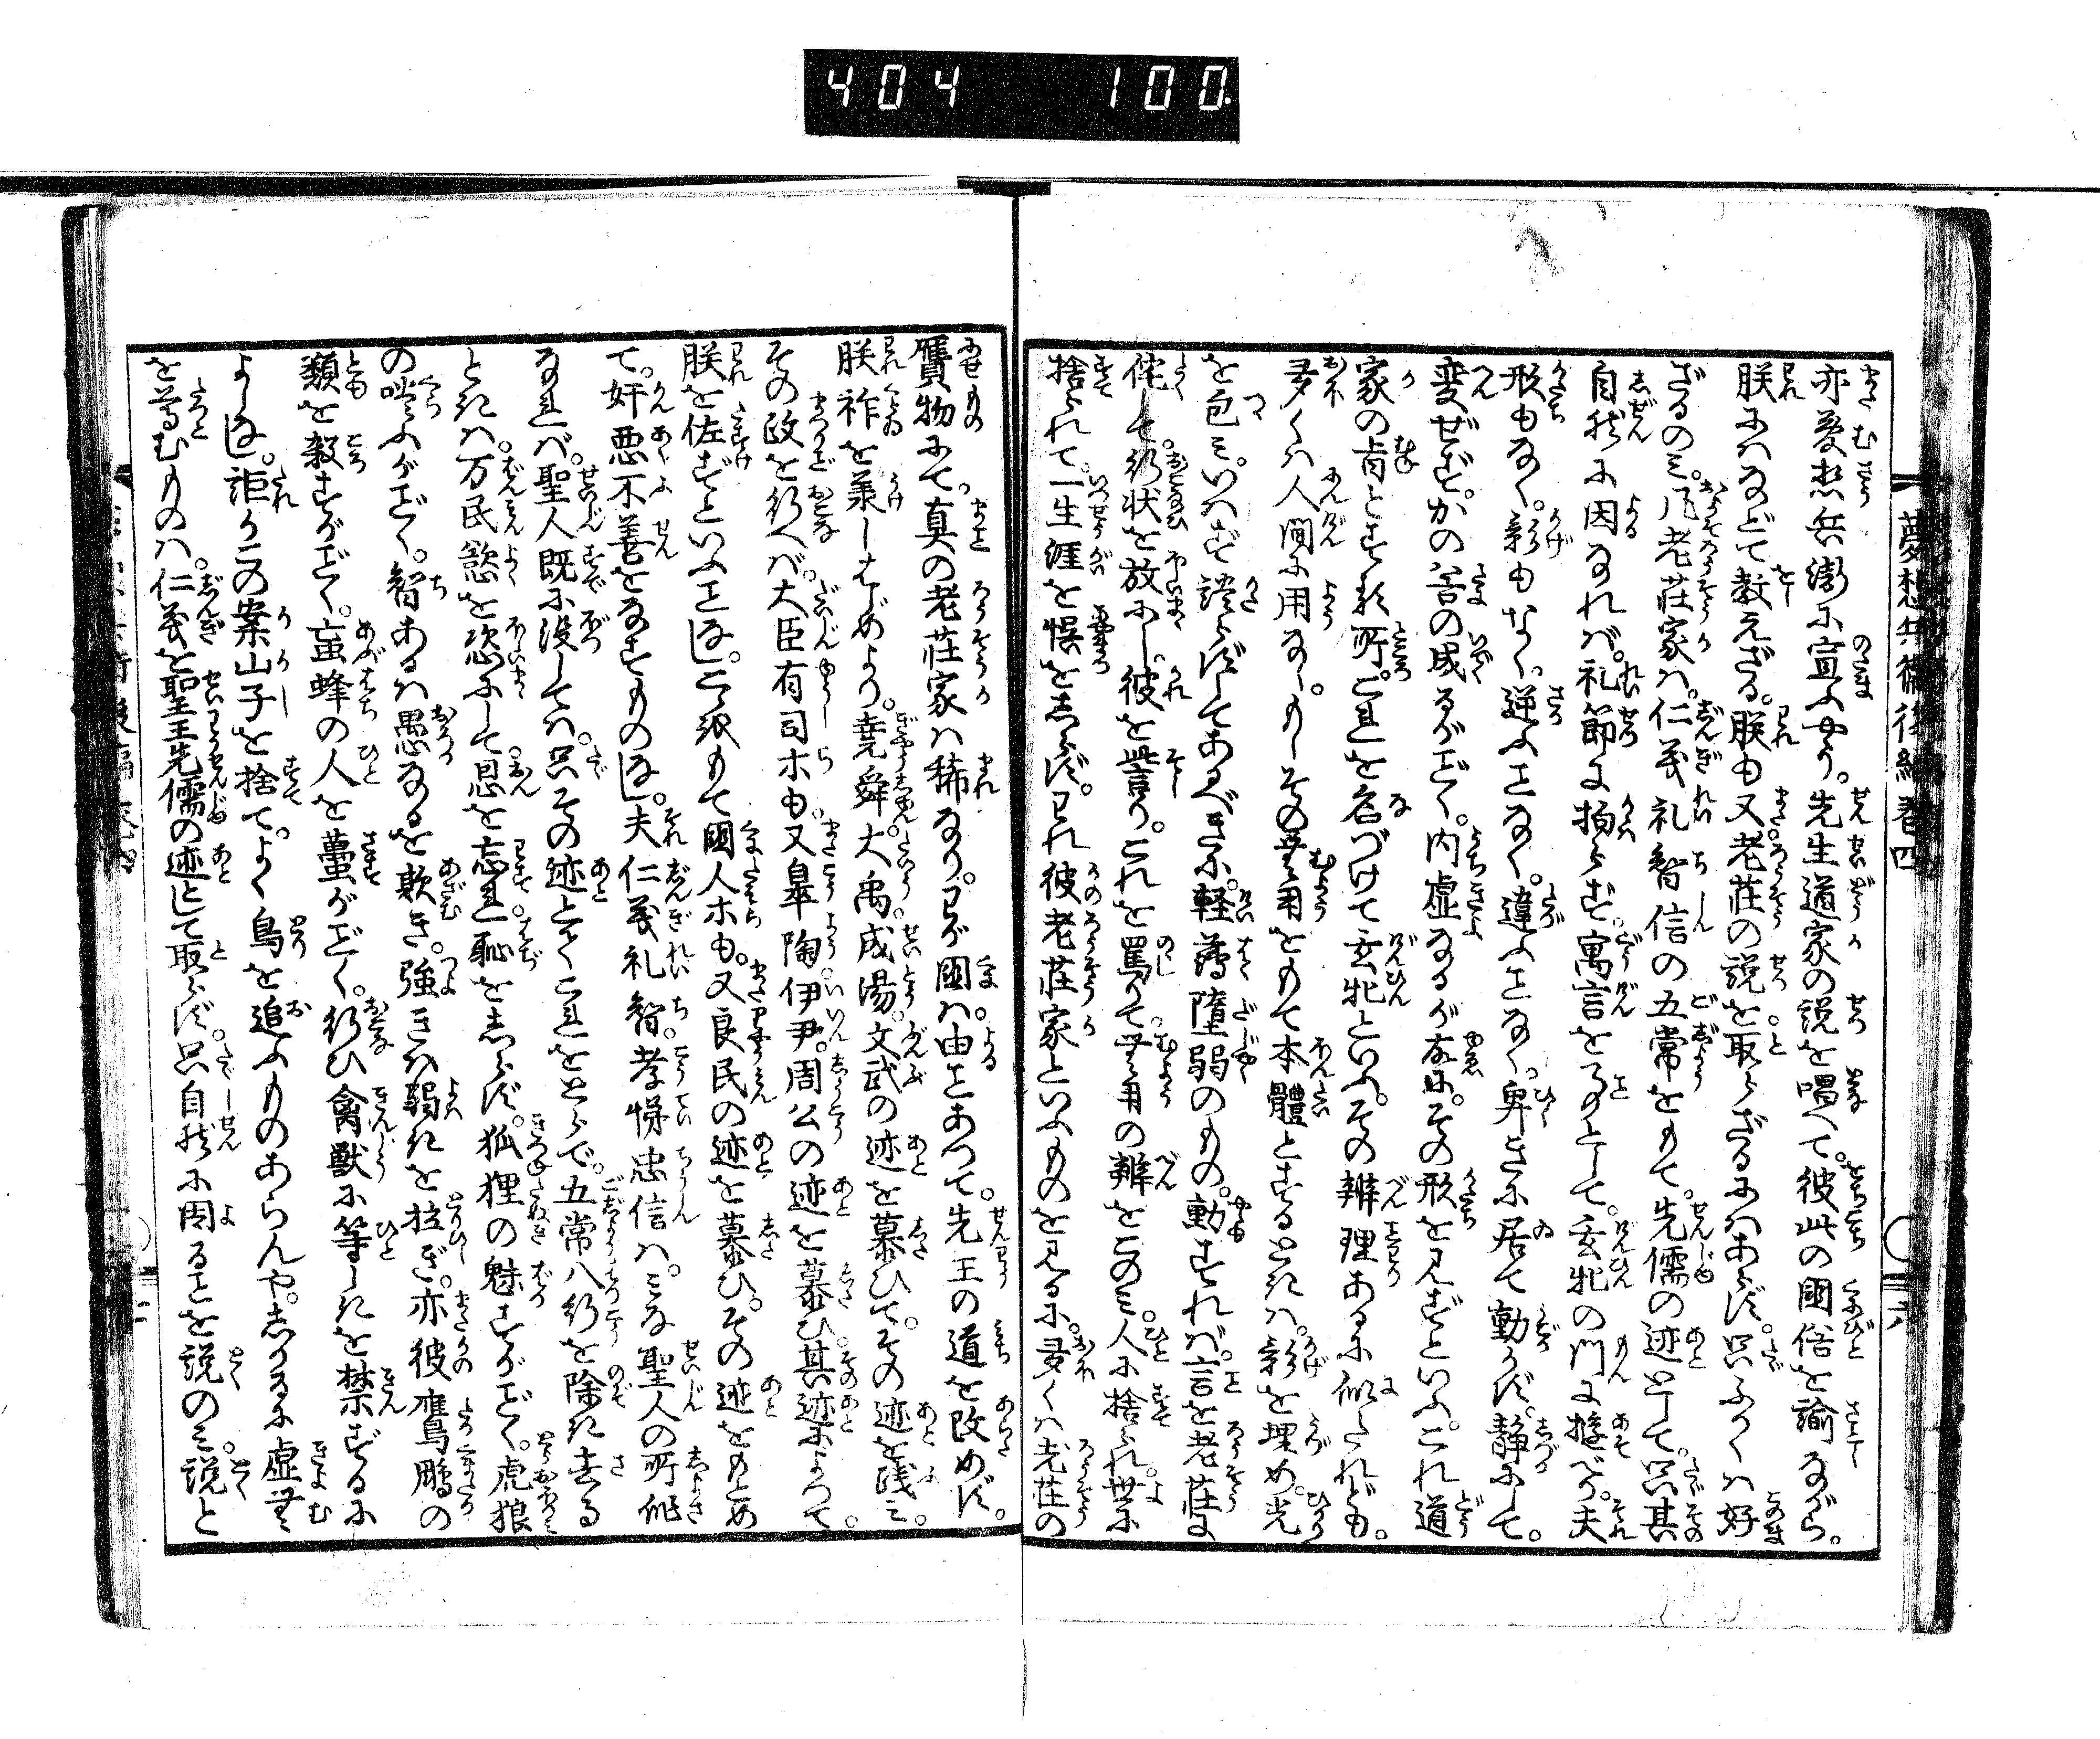 404 100
夢想兵衛後編巻四
六
亦夢想兵衛に宣ふやう。先生道家の説を唱へて。彼此の國俗を諭ながら。
朕にはなどて教えざる。朕も又老荘の説を取らざるにはあらず。只ふかくは好
ざるのミ。凡老荘家は。仁義礼智信の五常をもて。先儒の迹として。只其
自然に因なれバ。礼節に拘らず。寓言をことゝして。玄牝の門に遊べり。夫
形もなく。影もなく。逆ふことなく。違ふことなく。卑きに居て動かず。静にして。
変ぜず。かの谷の成るがごとく。内虚なるが故に。その形を見ずといふ。これ道
家の旨とする所。これを名づけて玄牝といふ。その辨理あるに似たれども。
多くは人間に用なし。もしその無用をもて本體とするときは。影を埋め。光
を包ミ。いはず語らずしてあるべきに。軽薄隨弱のもの。動すれバ。言を老荘に
侘して。行状を放にし。彼を誉り。これを罵りて。無用の辨をこのミ。人に捨られ。世に
捨られて。一生涯を悞をしらず。われ彼老荘家といふものを見るに。多くは老荘の
贋物にて。真の老荘家は稀なり。わが國は。由ことあつて。先王の道を改めず。
朕祚を棄しはじめより。堯舜。大禹成湯。文武の迹を慕ひて。その迹を践ミ。
その政を行へバ。大臣有司ホも。又皐陶伊尹。周公の迹を慕ひ。其迹によつて。
朕を佐ずといふことなし。こゝ以もて國人ホも。又良民の迹を慕ひ。その迹をもとめ
て。奸悪不善をなすものなし。夫仁義礼智。孝悌忠信は。ミな聖人の所作
なれバ。聖人既に没しては。只その迹としてこれをとらで。五常八行を除き去る
ときは。万民慾を恣にして恩を忘れ恥をしらず。狐狸の魅すがごとく。虎狼
の噬ふがごとく。智あるは愚なるを欺き。強きは弱きを拉ぎ。亦彼鷹鵰の
類を殺すがごとく。虻蜂の人を蠆がごとく。行ひ禽獣に等しきを禁ずるに
よしなし。誰かこの案山子を捨て。よく鳥を追ふものあらんや。しかるに虚無
を尊むものは。仁義を聖王先儒の迹として取らず。只自然に因ることを説のミ。説と